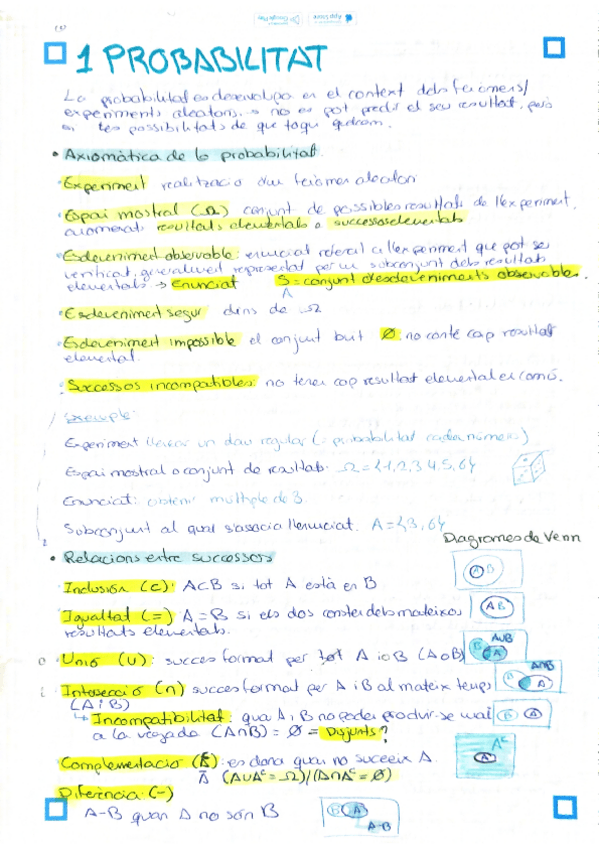 1 PROBABILITAT
La probabilitat es desenvolupa en el context dels fenòmens/
experiments aleatoris → no es pot predir el seu resultat, però
si les possibilitats de que tagui quedam.
• Axiomàtica de la probabilitat.
·Experiment realització d'un fenomen aleatori
·Espai mostral (Ω) conjunt de possibles resultats de l'experiment,
anomenats resultats elementals o successos elementals
·Esdeveniment observable: enunciat referent a l'experiment que pot ser
verificat, generalment representat per un subconjunt dels resultats
elementals → Enunciat S = conjunt d'esdeveniments observables.
A
·Esdeveniment segur dins de Ω
·Esdeveniment impossible el conjunt buit Ø: no conté cap resultat
elemental.
·Successos incompatibles: no tenen cap resultat elemental en comú.
Exemple:
Experiment llençar un dau regular (= probabilitat cada número)
Espai mostral o conjunt de resultats: Ω={1,2,3,4,5,6}
Enunciat: obtenir múltiple de 3.
Subconjunt al qual s'associa l'enunciat. A={3,6}
Diagrames de Venn
• Relacions entre successos
·Inclusión (c): A⊂B si tot A està en B
A B
·Igualtat (=) A=B si els dos consten dels mateixos
resultats elementals.
A B
·Unió (∪): succés format per tot A i o B (A o B)
B A A∪B
·Intersecció (∩) succés format per A i B al mateix temps
(A i B)
B A A∩B
↳ Incompatibilitat: quan A i B no poden produir-se mai
a la vegada (A∩B) = Ø = Disjunts?
B A
·Complementació (Ā): es dona quan no succeeix A.
Ā (A∪Aᶜ=Ω)/(A∩Aᶜ=Ø)
A Aᶜ
Diferència: (-)
A-B quan A no són B
B A A-B